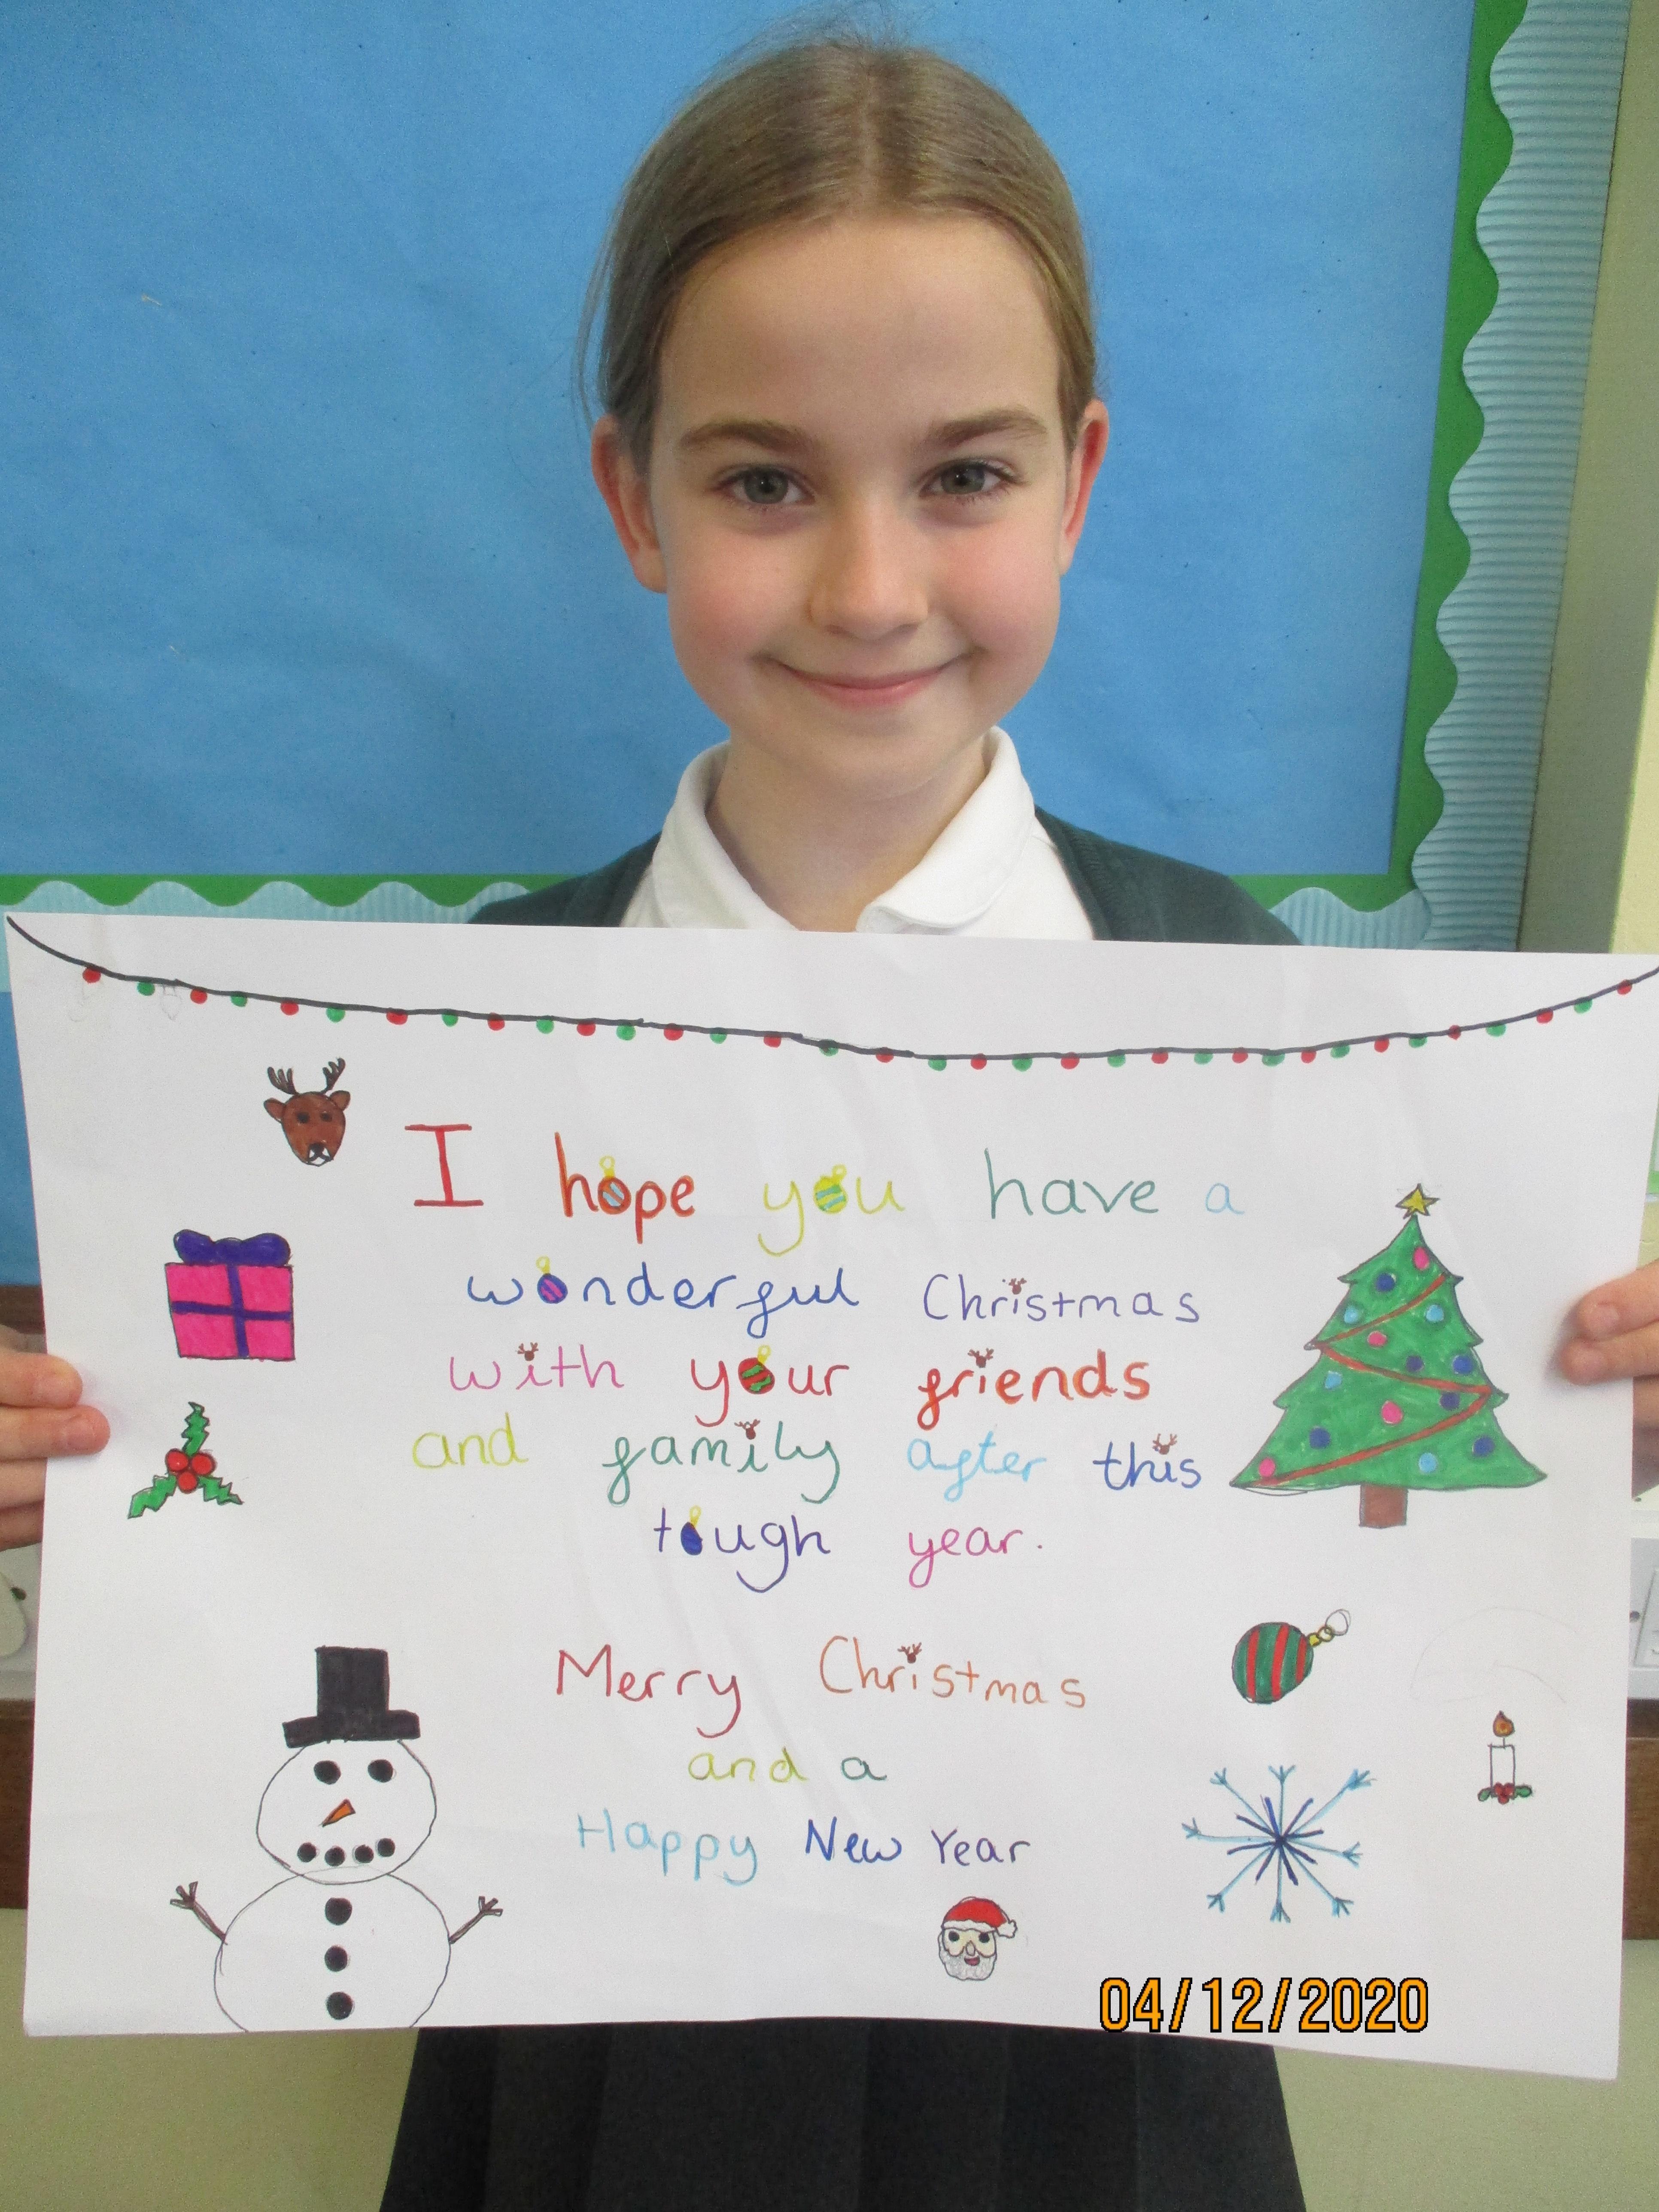 I hope you have a
wonderful Christmas
with your friends
and family after this
tough year.
Merry Christmas
and a
Happy New Year
04/12/2020